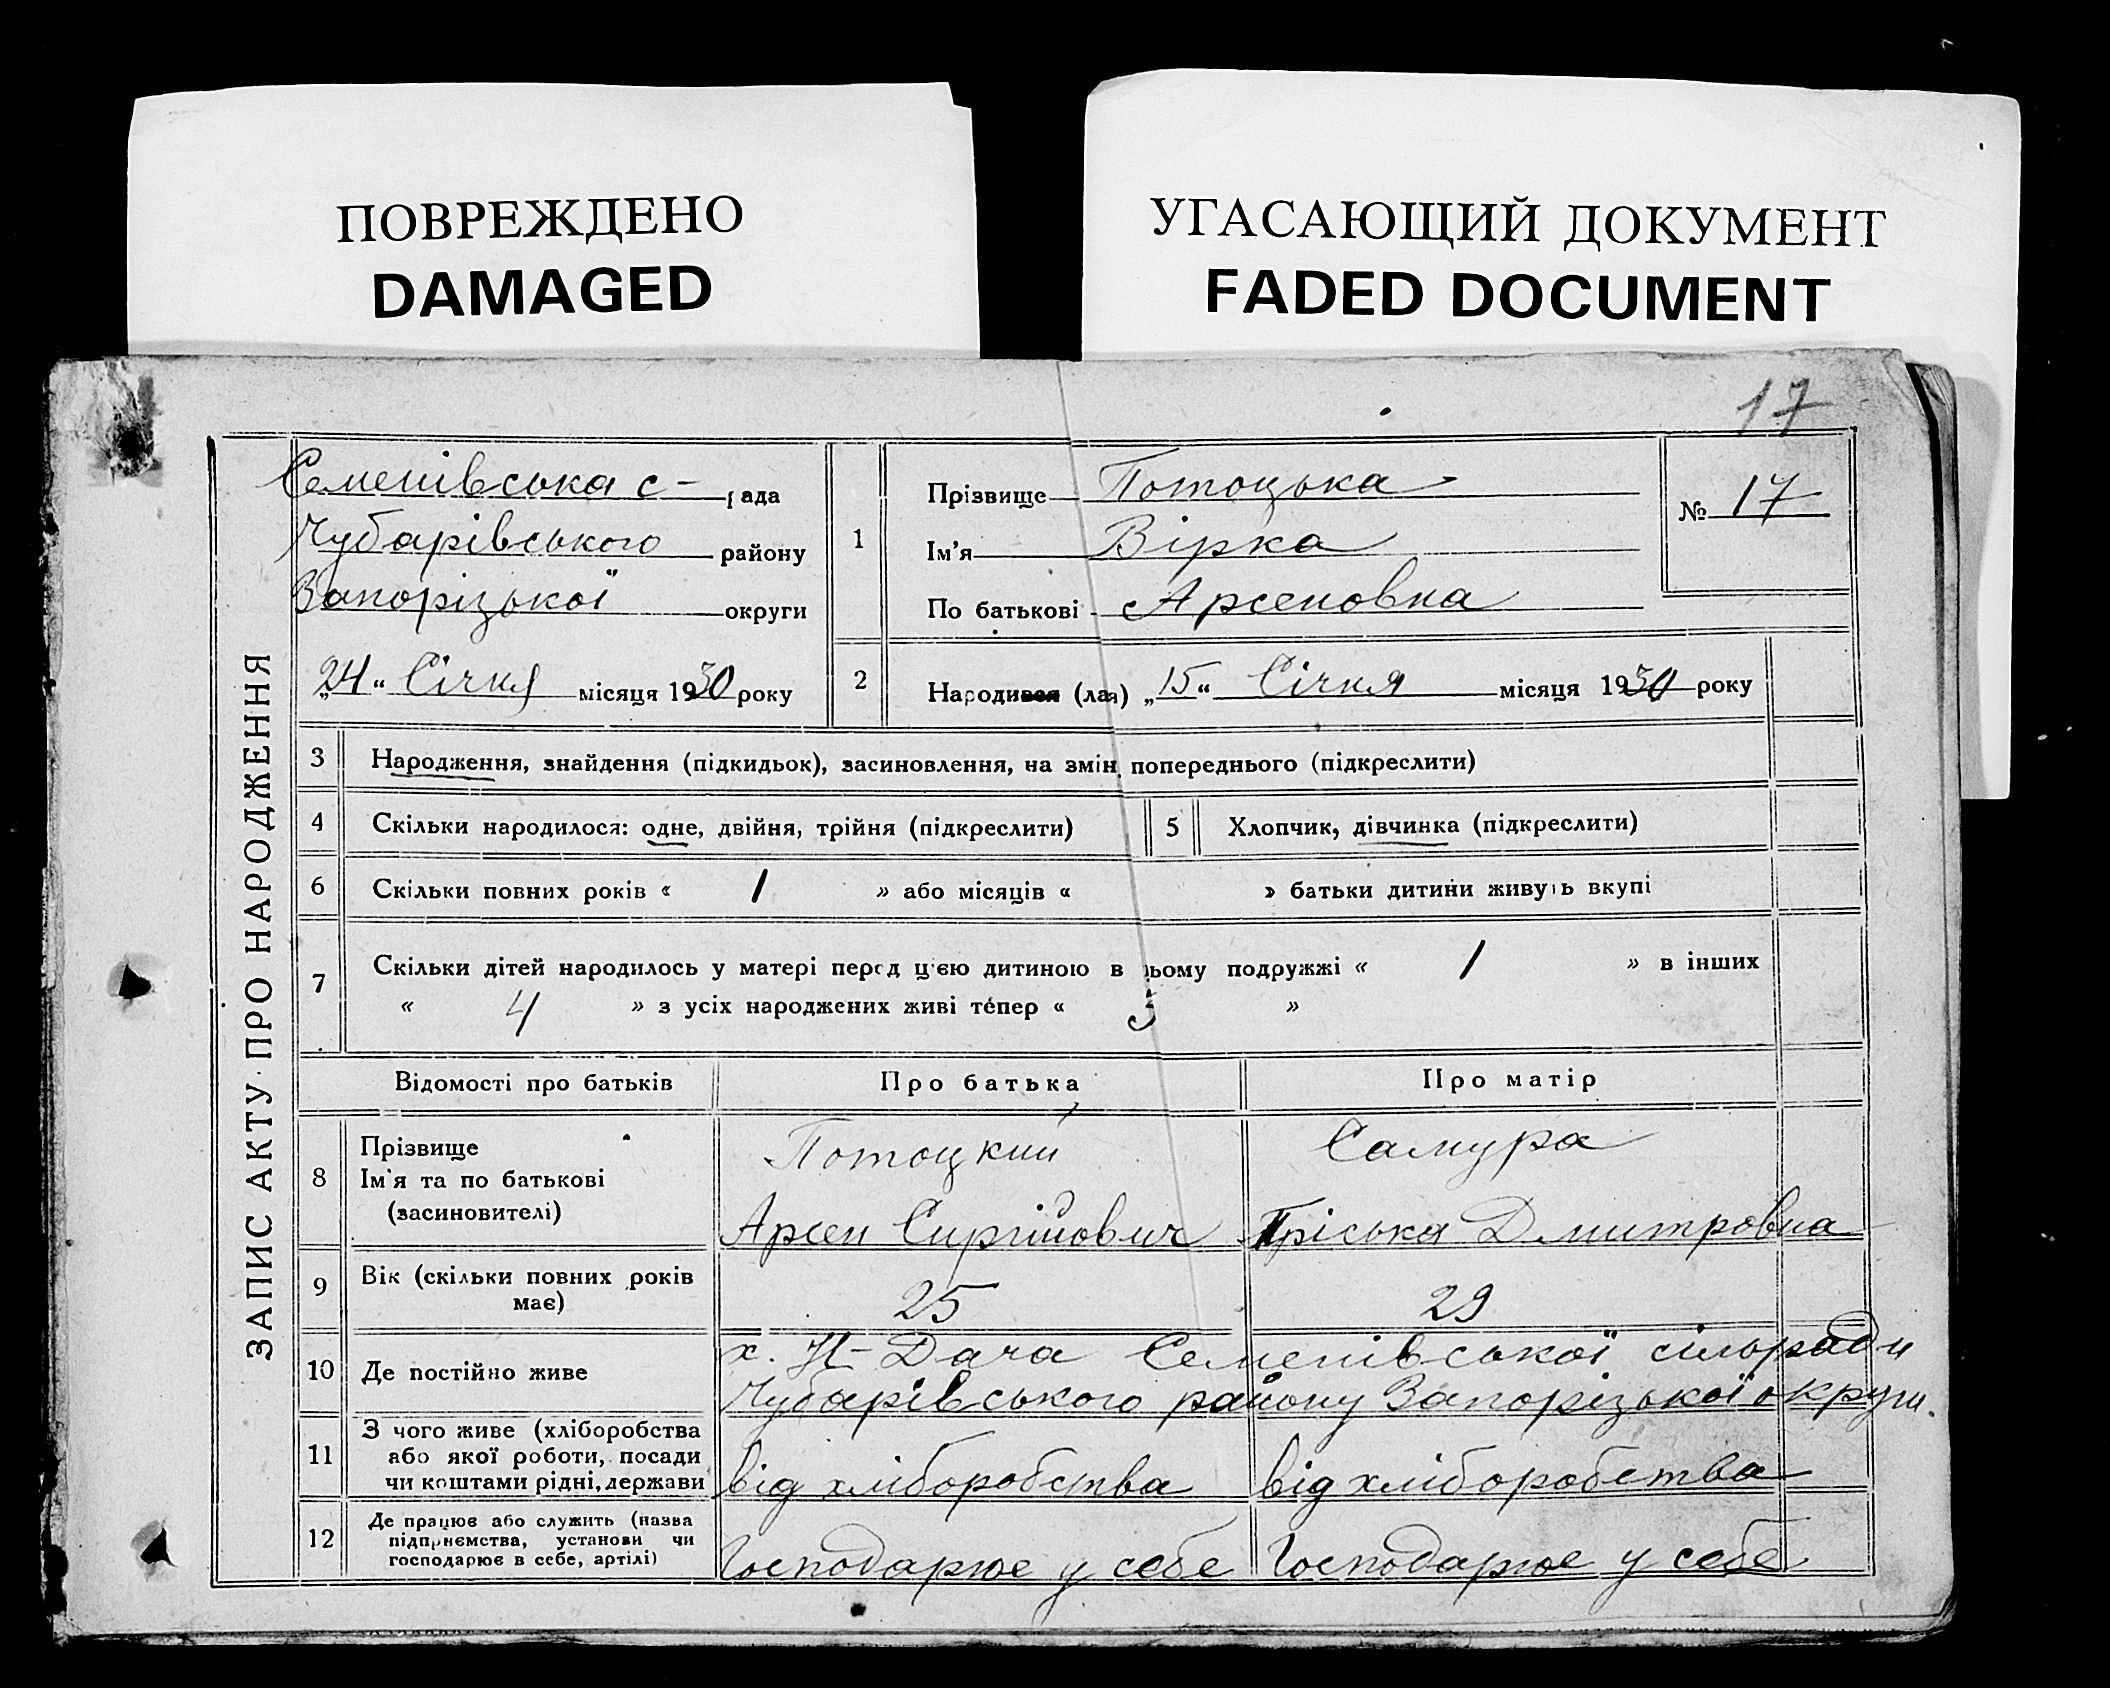 ПОВРЕЖДЕНО
DAMAGED
УГАСАЮЩИЙ ДОКУМЕНТ
FADED DOCUMENT
17
ЗАПИС АКТУ ПРО НАРОДЖЕННЯ
Семенівська с - рада
Чубарівського району
Запорізької округи
„24“ Січня місяця 1930 року
1
Прізвище Потоцька
Ім’я Вірка
По батькові Арсеновна
№ 17
2 Народився (лая) „15“ Січня місяця 1930 року
3 Народження, знайдення (підкидьок), засиновлення, на змін. попереднього (підкреслити)
4 Скільки народилося: одне, двійня, трійня (підкреслити) 5 Хлопчик, дівчинка (підкреслити)
6 Скільки повних років « 1 » або місяців « » батьки дитини живуть вкупі
7 Скільки дітей народилось у матері перед цією дитиною в цьому подружжі « 1 » в інших
« 4 » з усіх народжених живі тепер « 5 »
Відомості про батьків Про батька Про матір
8 Прізвище
Ім'я та по батькові
(засиновителі)
Потоцкий
Арсен Сиргійович
Самура
Пріська Дмитровна
9 Вік (скільки повних років
має)
25 29
10 Де постійно живе
х. Н-Дача Семенівської сільради
Чубарівського району Запорізької округи.
11 З чого живе (хліборобства
або якої роботи, посади
чи коштами рідні, держави
від хліборобства від хліборобства
12 Де працює або служить (назва
підприємства, установи чи
господарює в себе, артілі)
Господарює у себе Господарює у себе